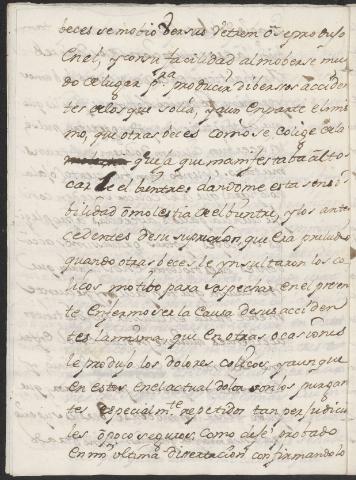 beces se motio de sus detrem.os se produso
en el, y con su facilidad al moberse mu
do de lugar p.ra producir dibersos acciden
tes de los que solia, y aun en parte el mis
mo, que otras beces como se colige de la
que a qui manifestaba al to
carle el bientre dandome esta sensi
bilidad o molestia de el bientre, y los ante
cedentes de su supresion, que era preludio
quando otras beces le ynsultaron los co
licos motibo para sospechar en el presen
te enfermo ser la causa de sus acciden
tes la misma, que en otras ocasiones
le produjo los dolores colicos, y aunque
en estos, en el actual dolor son los purgan
tes especialm.te repetidos tan perjudicia
les o poco seguros, como dije probado
en mi ultima disertacion confirmandolo